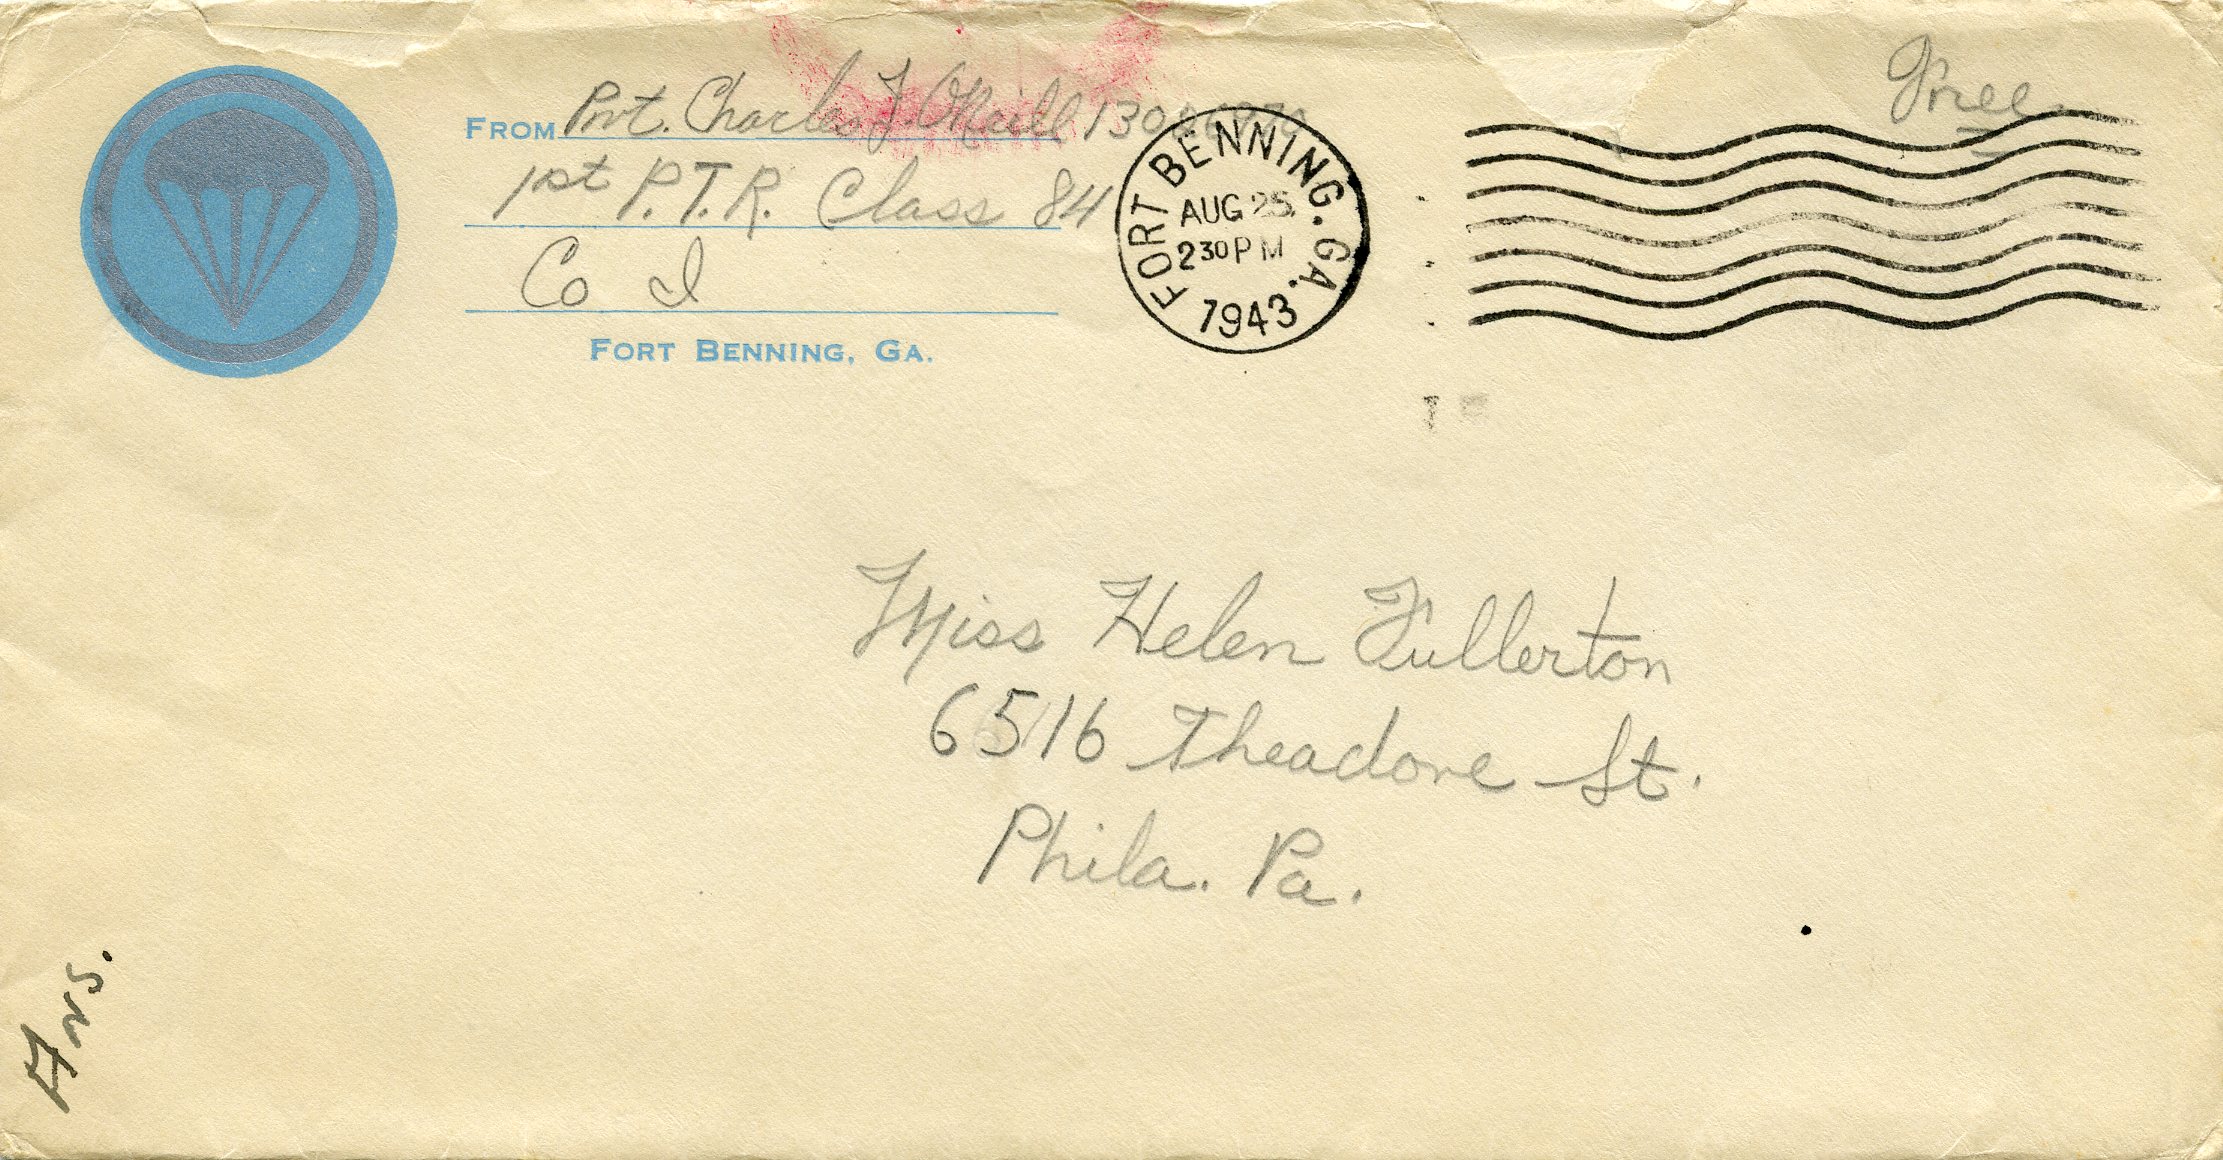 FROM Pvt. Charles J O'Neill
1st P.T.R. Class 84
Co I
FORT BENNING, GA.
FORT BENNING, GA.
AUG 25
230 PM
1943
Free
Miss Helen Fullerton
6516 Theadore St.
Phila. Pa.
Ans.